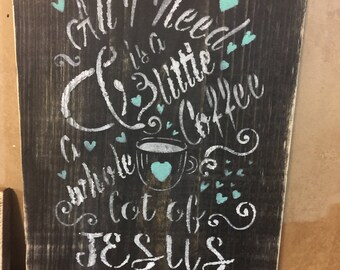 All I need
is a
little
Coffee
a
whole
lot of
JESUS